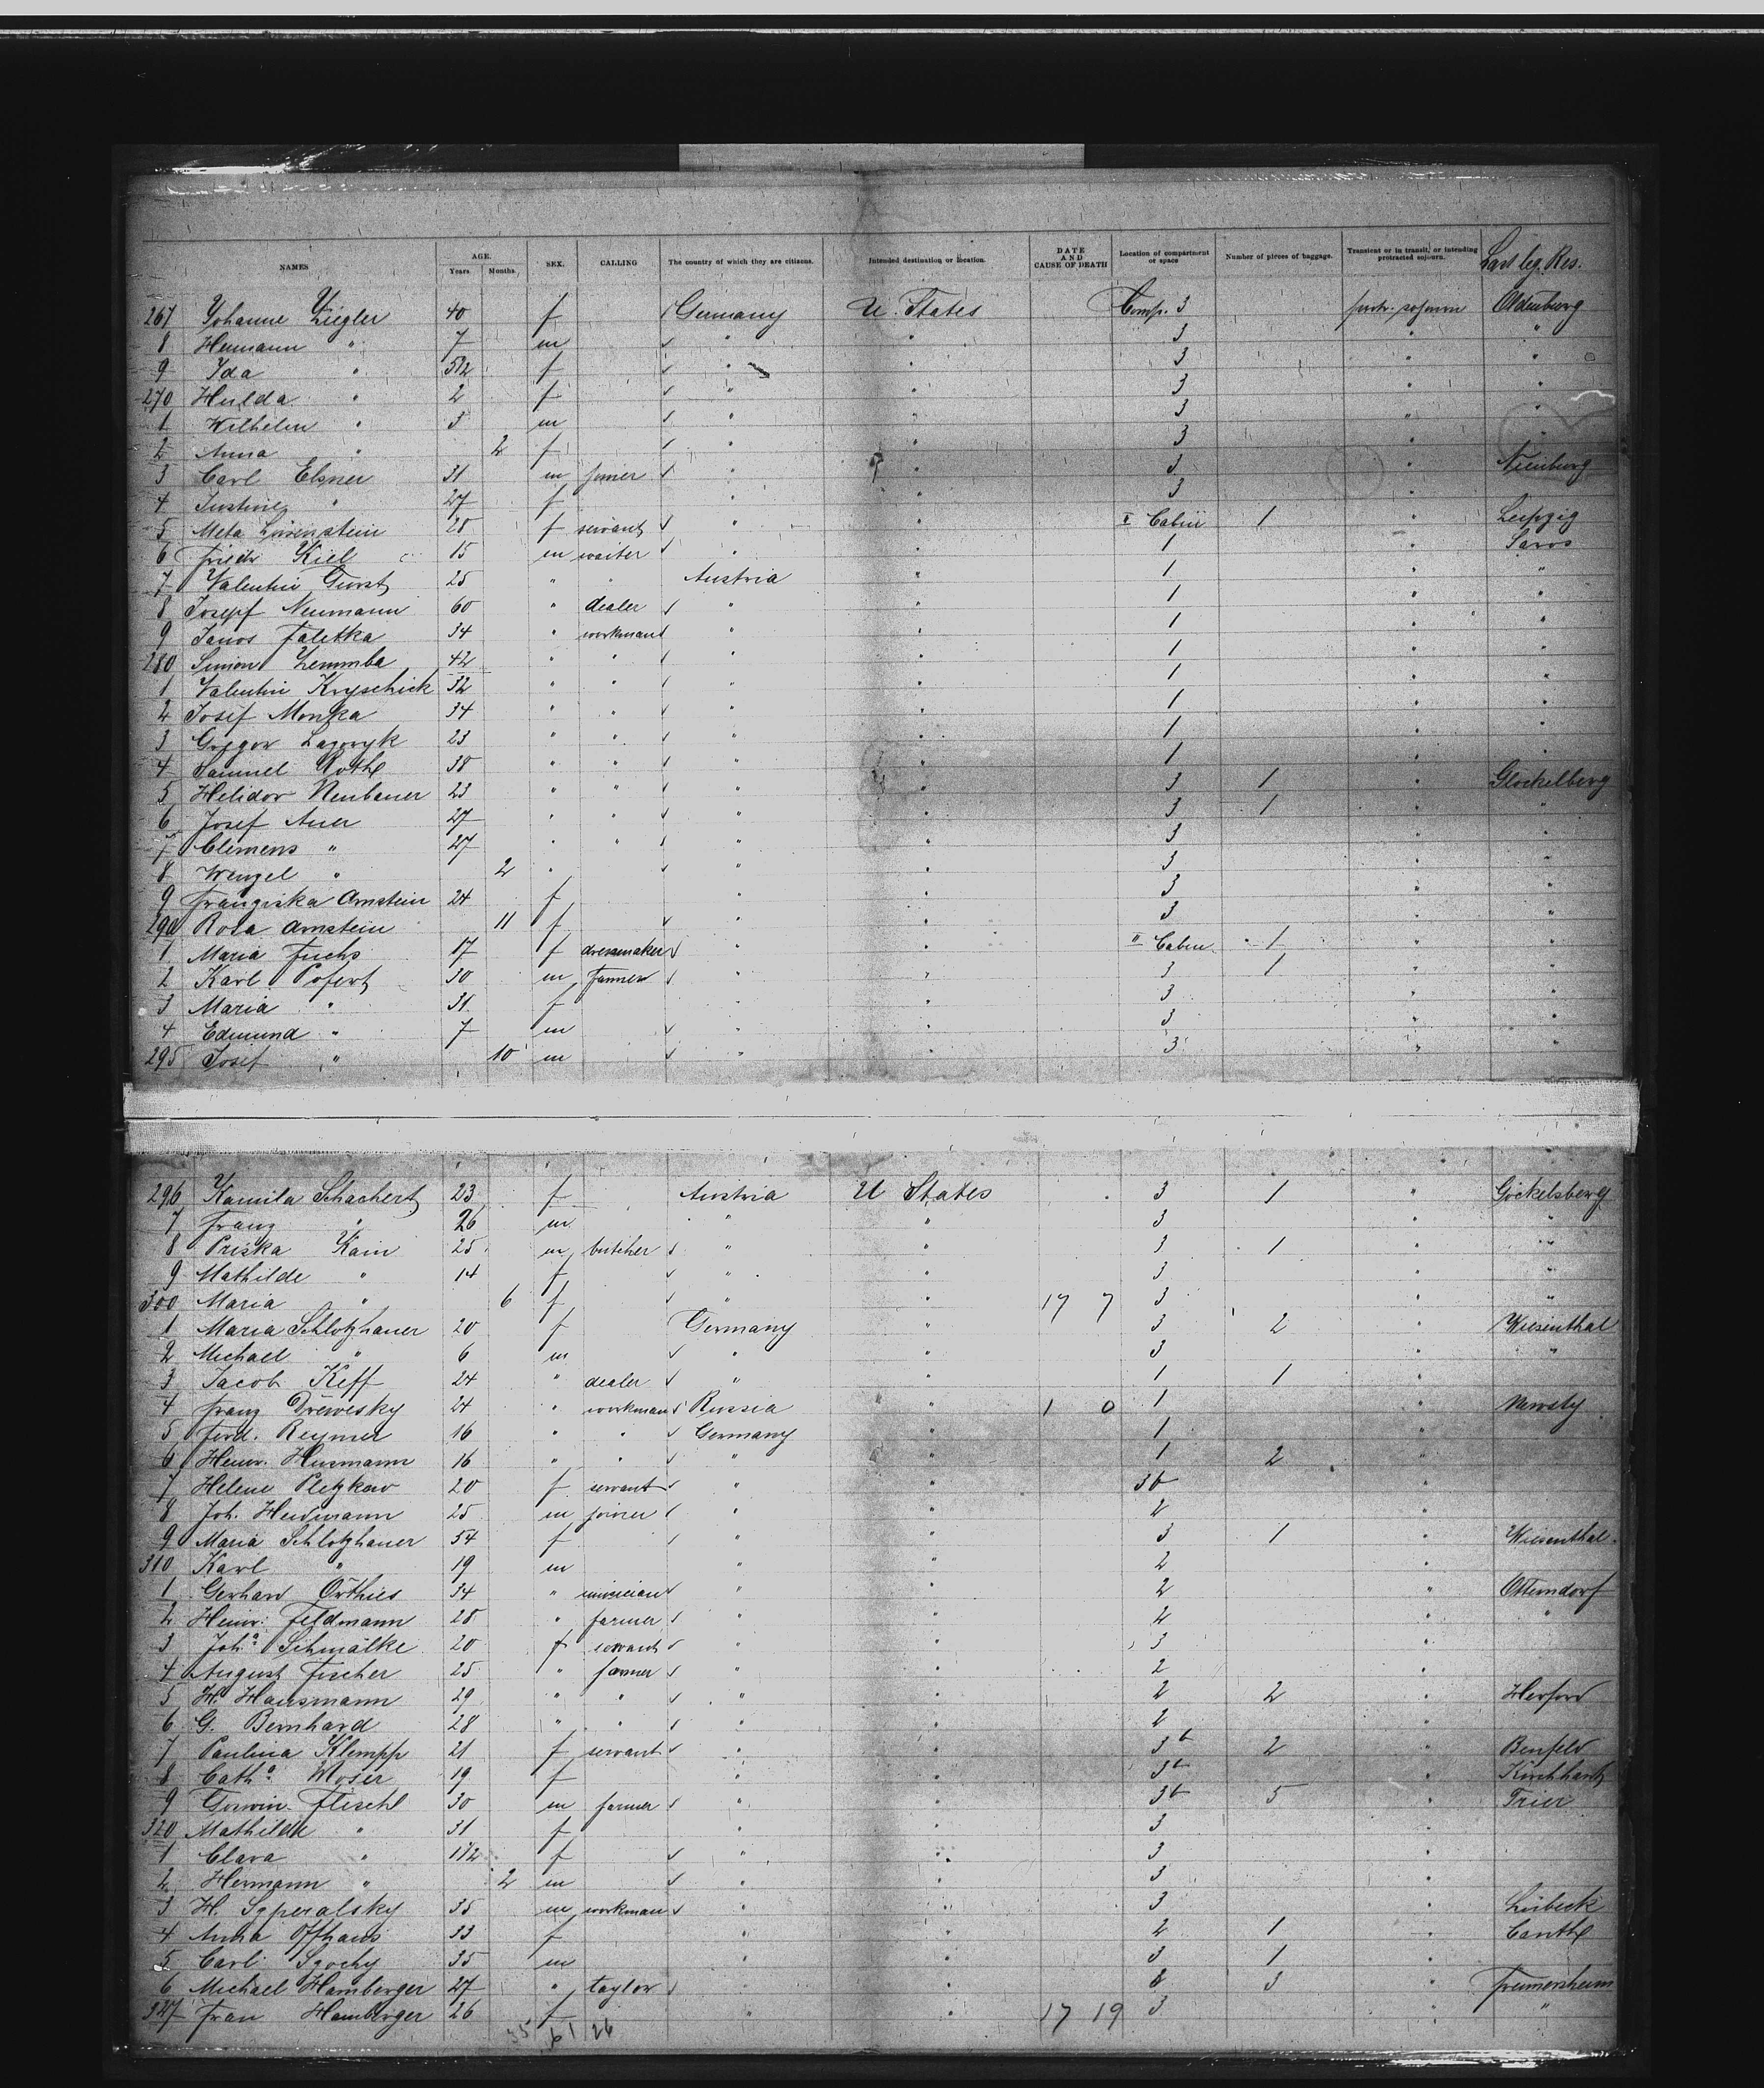 NAMES AGE. Years. Months. SEX. CALLING The country of which they are citizens. Intended destination or location. DATE AND CAUSE OF DEATH Location of compartment or space Number of pieces of baggage. Transient or in transit, or intending protracted sojourn. Last leg. Res.
267 Johanne Ziegler 40 f Germany U. States Comp. 3 protr. sojourn Oldenburg
8 Hermann " 7 m " " 3 " "
9 Ida " f " 3 " "
270 Hulda " 2 f " 3 " "
1 Wilhelm " m " " 3 "
2 Anna " 2 f " " 3 "
3 Carl Elsner 31 m " " 3 "
4 Justine " 27 f " " 3 "
5 Meta 28 f servant " " Cabin 1 " Leipzig
6 Friedr Kiel 15 m waiter " " 1 " Saros
7 Valentin 25 " " Austria " 1 "
8 Josepf Neumann 60 " dealer " " 1 " "
9 Janos Faletka 34 " workman " " 1 " "
280 Simon 42 " " " " 1 " "
1 Valentin Kryschick 32 " " " " 1 " "
2 Josef Monka 34 " " " " 1 " "
3 Gregor 23 " " " " 1 " "
4 Samuel Roth 38 " " " " 1 "
5 Helidor Neubauer 23 " " " " 3 1 " Glockelberg
6 Josef Auer 27 " " " " 3 1 " "
7 Clemens " 27 " " " " 3 " "
8 Wenzel " 2 " " " 3 " "
9 Franziska Arnstein 24 f " " 3 " "
290 Rosa Arnstein 11 f " " 3 " "
1 Maria Fuchs 17 f dressmaker " " II Cabin 1 " "
2 Karl Pofert 30 m farmer " " 3 1 " "
3 Maria " 31 f " " 3 " "
4 Edmund " 7 m " " 3 " "
295 Josef " 10 m " " 3 " "
296 Kamila Schachert 23 f Austria U States 3 1 " Göckelsberg
7 Franz " 26 m " " 3 " "
8 Priska Kain 25 m butcher " " 3 1 " "
9 Mathilde " 14 f " " 3 " "
300 Maria " 6 f " " 17 7 3 " "
1 Maria Schlotzhauer 20 f Germany " 3 2 " Wiesenthal
2 Michael " 6 m " " 3 " "
3 Jacob Keff 24 " dealer " " 1 1 "
4 Franz Drewesky 24 " workman Russia " 1 0 1 "
5 Ferd. Reymer 16 " " Germany " 1 "
6 Heinr. Husmann 16 " " " " 1 2 "
7 Helene Pletzkow 20 f servant " " 3b "
8 Joh. 25 m joiner " " 2 "
9 Maria Schlotzhauer 54 f " " 3 1 " Wiesenthal
310 Karl " 19 m " " 2 "
1 Gerhard Orthies 34 " musician " " 2 " Otterndorf
2 Heinr. Feldmann 28 " farmer " " 2 " "
3 Joh.a Schmälke 20 f servant " " 3 "
4 August Fischer 25 " farmer " " 2 "
5 H. Hausmann 29 " " " " 2 2 " Herford
6 G. Bernhard 28 " " " " 2 "
7 Paulina Klempp 21 f servant " " 3b 2 " Benfeld
8 Cath.a Moser 19 f " " 3b "
9 30 m farmer " " 3b 5 " Trier
320 Mathilde " 31 f " 3 "
1 Clara " f " " 3 "
2 Hermann " 2 m " " 3 "
3 H. 35 m workman " " 3 " Lübeck
4 Anna Offhaus 33 f " " 2 1 " Canth
5 Carl 35 m " " 3 1 "
6 Michael Hamberger 27 " taylor " " 3 "
327 Frau Hamberger 26 f " " 17 19 3 " "
35 61 26